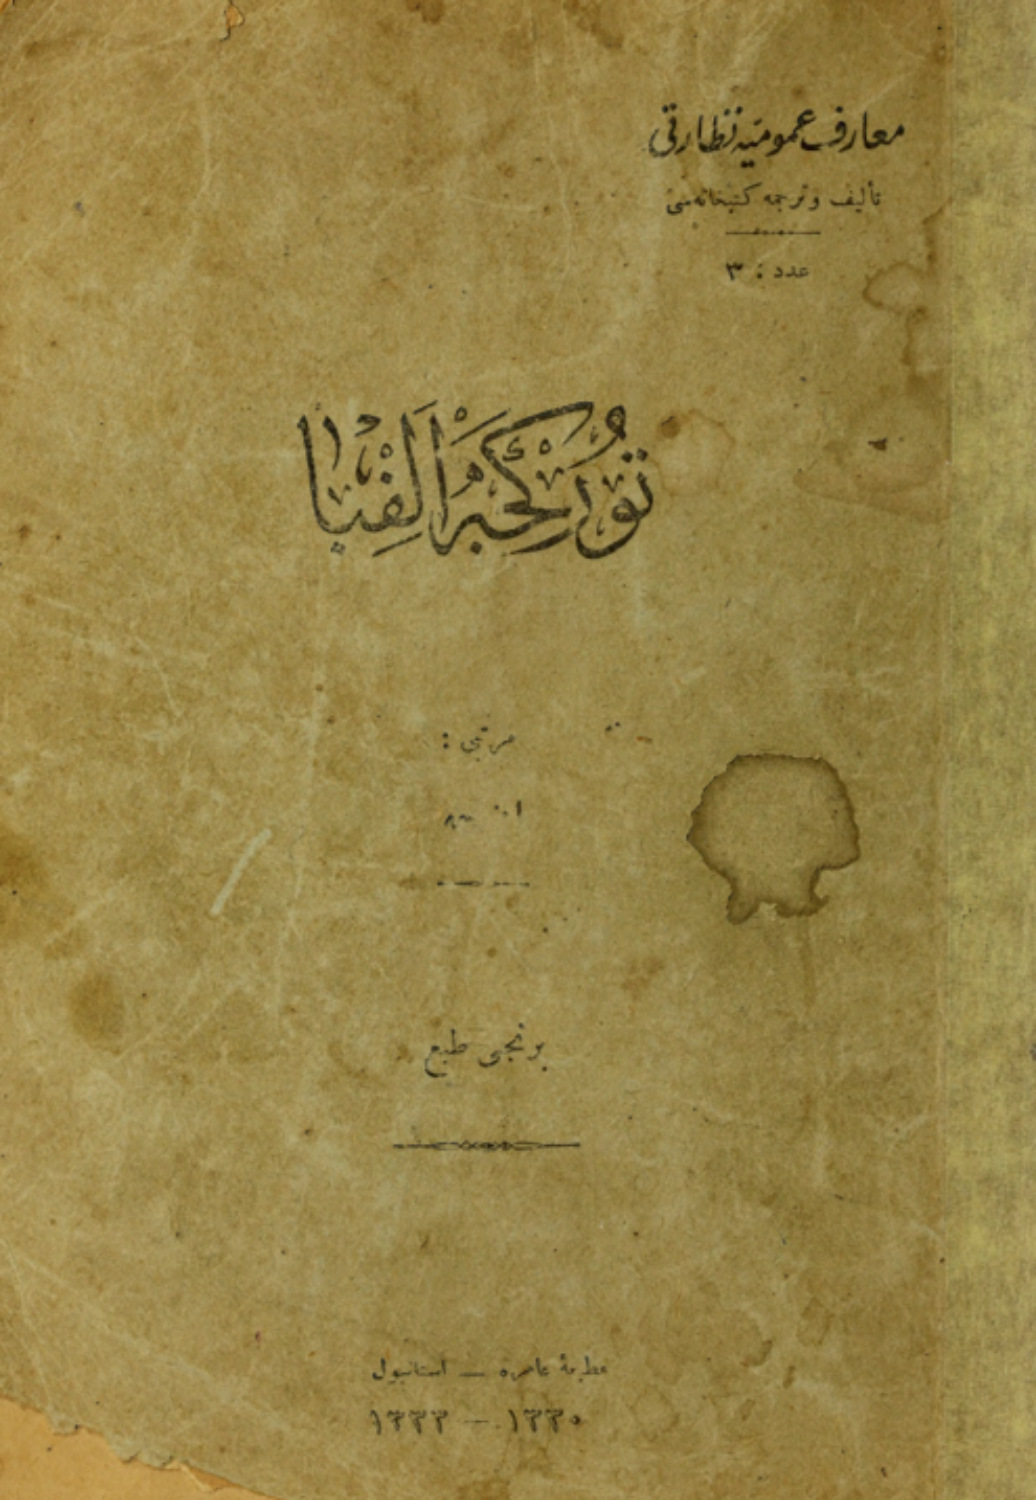 معارف عمومیه نظارتی
تألیف و ترجمه کتبخانه‌سی
عدد : ۳
تورکجه الفبا
مرتبی :
برنجی طبع
مطبعهٔ عامره — استانبول
۱۳۳۳ — ۱۳۳۵